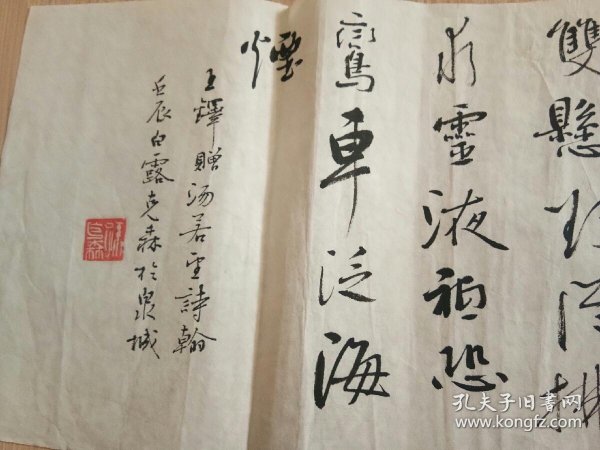 雙懸
靈液袖恐
鸞車泛海
煙
王鐸贈汤若望詩翰
壬辰白露克森於泉城
孔夫子旧书网
www.kongfz.com